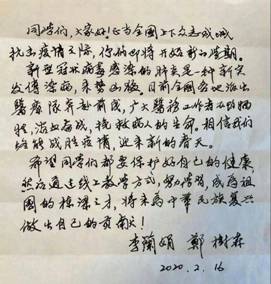 同学们,大家好!正当全國上下众志成城
抗击疫情之际,你们即将开始新的学期。
新型冠状病毒感染的肺炎是一种新突
发传染病,来势凶猛,目前全國各地派出
醫療隊奔赴前线,广大醫務工作者不怕牺
牲,浴血奋战,挽救病人的生命。相信我们
终能战胜疫情,迎来新的春天。
希望同学们都要保护好自己的健康,
积极通过线上教学方式,努力学習,成为祖
國的栋梁之才,将来为中華民族复兴
做出自己的贡献!
李蘭娟 鄭樹森
2020.2.16